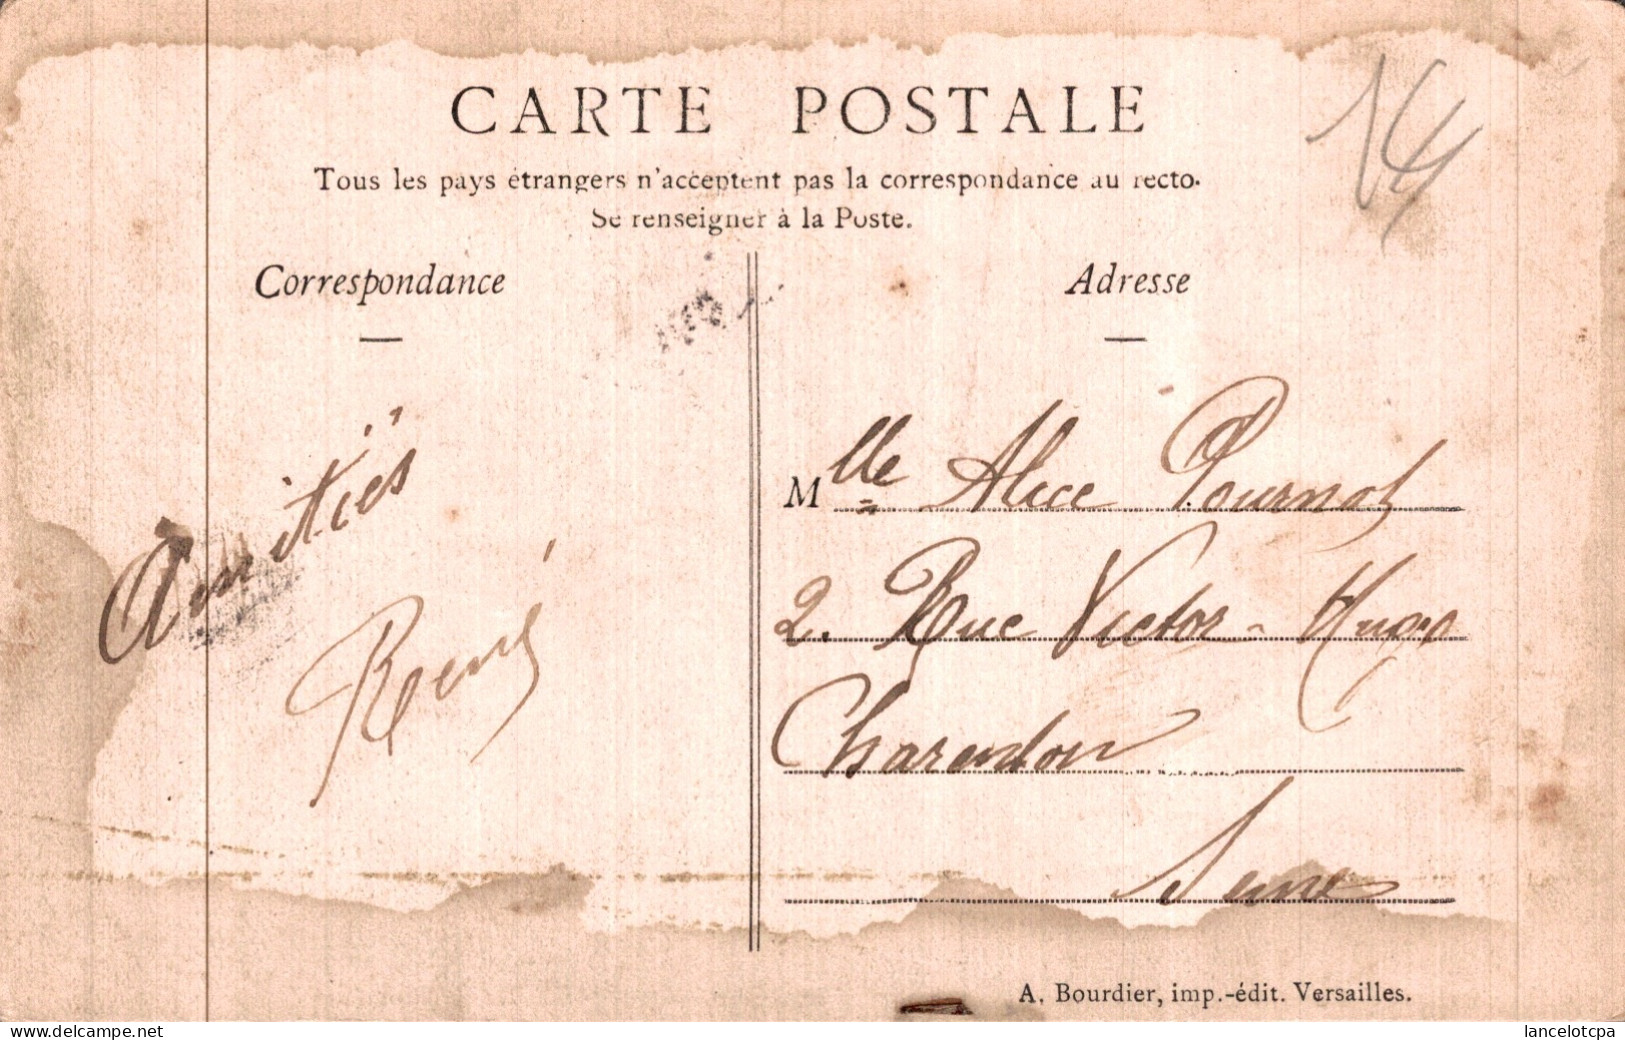 CARTE POSTALE
14
Tous les pays étrangers n'acceptent pas la correspondance au recto.
Se renseigner à la Poste.
Correspondance
Amitiés
René
Adresse
Mlle Alice Pournot
2. Rue Victor-Hugo
Charenton
Seine
A. Bourdier, imp.-édit. Versailles.
https://www.delcampe.net
lancelotcpa